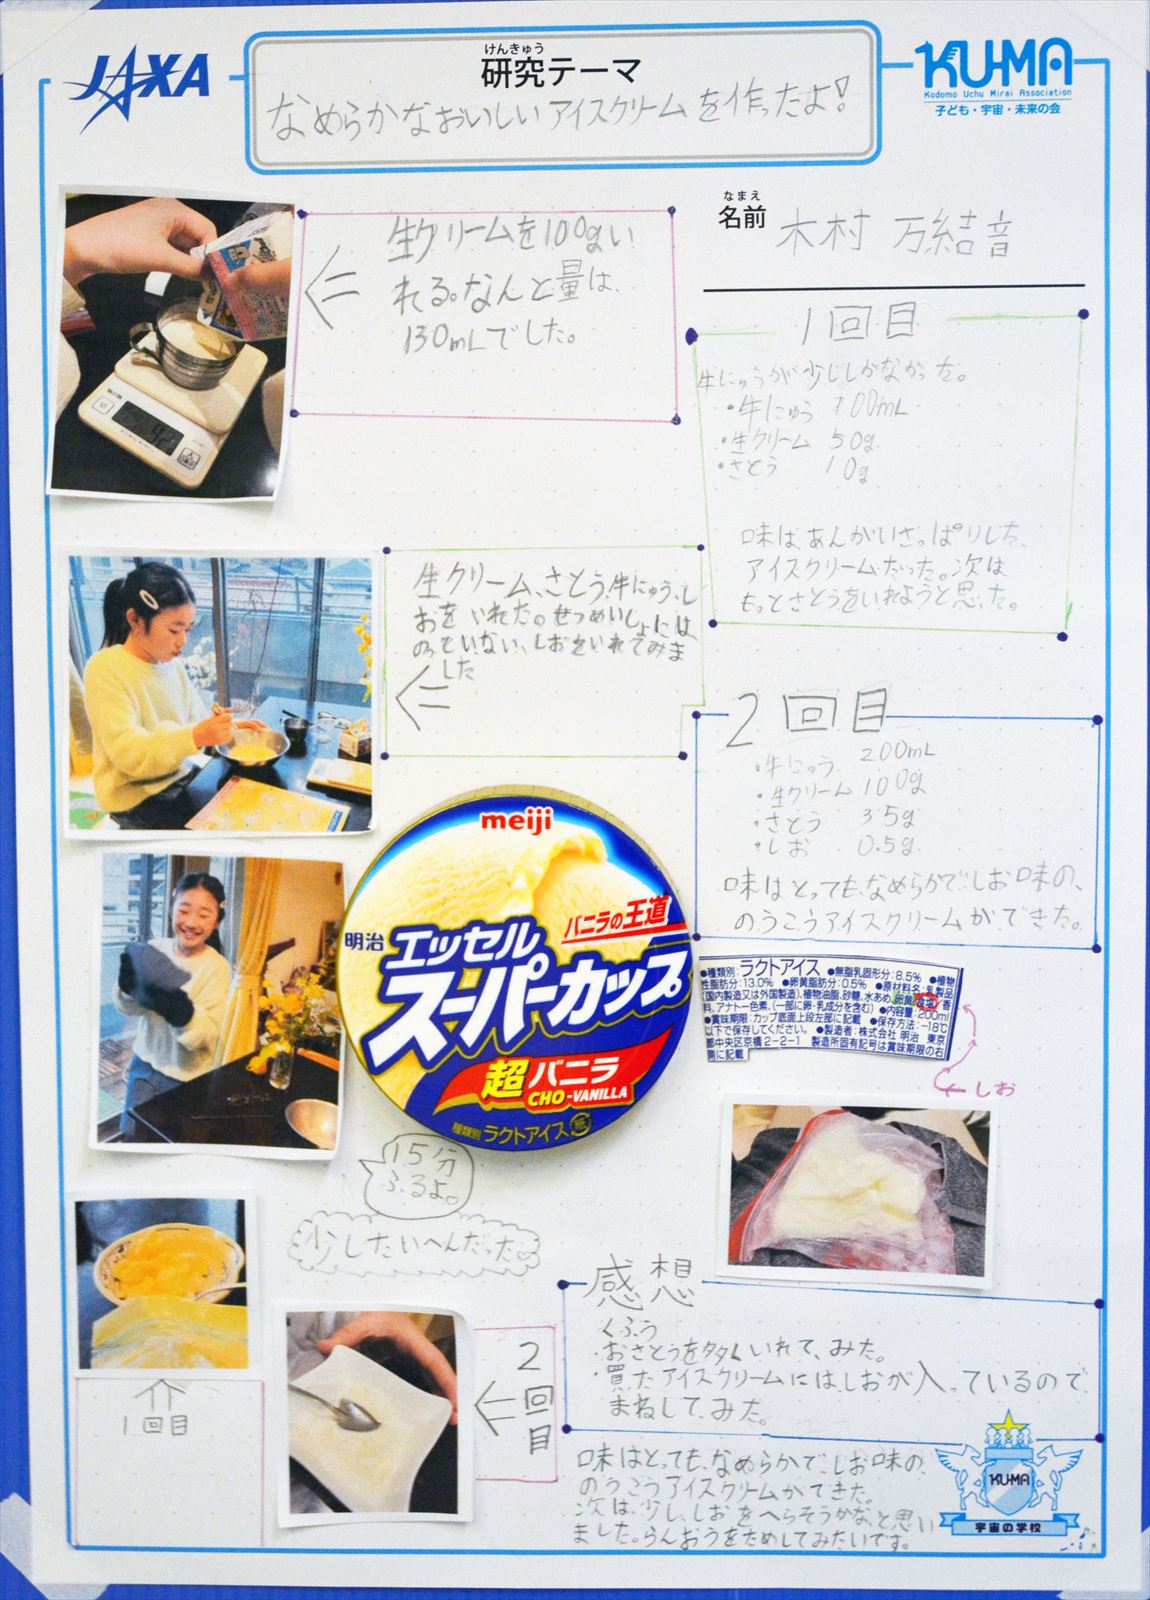 JAXA
けんきゅう
研究テーマ
なめらかなおいしいアイスクリームを作ったよ!
KU-MA
Kodomo Uchu Mirai Association
子ども・宇宙・未来の会
なまえ
名前 木村 万結音
生クリームを100gい
れる。なんと量は、
130mLでした。
1回目
牛にゅうが少ししかなかった。
・牛にゅう 100mL
・生クリーム 50g
・さとう 10g
味は、あんがいさっぱりした、
アイスクリームだった。次は
もっとさとうをいれようと思った。
生クリーム、さとう、牛にゅう、し
おをいれた。せつめいしょには、
のっていない、しおをいれてみま
した
2回目
・牛にゅう 200mL
・生クリーム 100g
・さとう 35g
・しお 0.5g
味はとっても、なめらかで、しお味の、
のうこうアイスクリームができた。
meiji
バニラの王道
明治 エッセル
スーパーカップ
超バニラ
CHO-VANILLA
種類別 ラクトアイス 紙
●種類別:ラクトアイス ●無脂乳固形分:8.5% ●植物
性脂肪分:13.0% ●卵黄脂肪分:0.5% ●原材料名:乳製品
(国内製造又は外国製造)、植物油脂、砂糖、水あめ、卵黄、食塩/香
料、アナトー色素、(一部に卵・乳成分を含む) ●内容量:200ml
●賞味期限:カップ底面上段左部に記載 ●保存方法:-18℃
以下で保存してください。 ●製造者:株式会社 明治 東京
都中央区京橋2-2-1 製造所固有記号は賞味期限の右
側に記載
しお
15分
ふるよ。
少したいへんだった。
1回目
2
回
目
感想
くふう
・おさとうを多くいれて、みた。
・買ったアイスクリームにはしおが入っているので、
まねしてみた。
味はとっても、なめらかで、しお味の、
のうこうアイスクリームができた。
次は、少し、しおをへらそうかな、と思い
ました。らんおうをためしてみたいです。
KU-MA
宇宙の学校